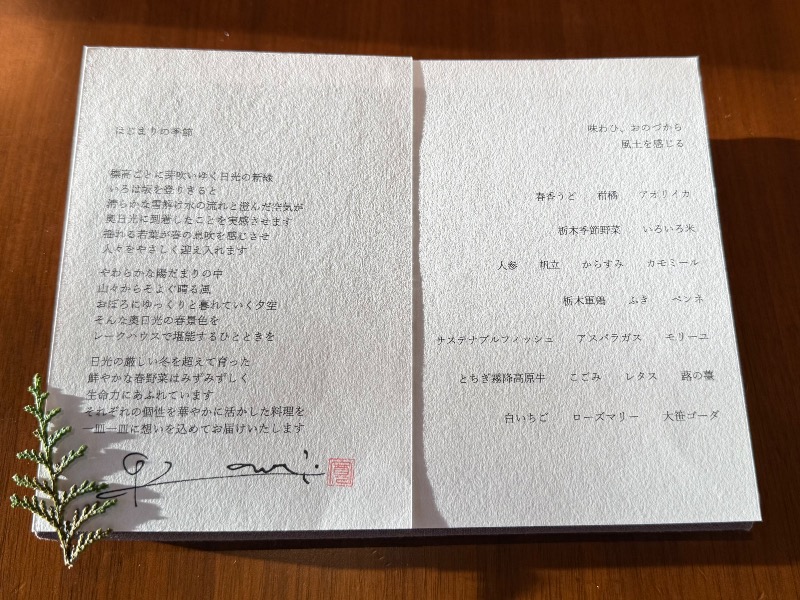 はじまりの季節
標高ごとに芽吹いゆく日光の新緑
いろは坂を登りきると
清らかな雪解け水の流れと澄んだ空気が
奥日光に到着したことを実感させます
揺れる若葉が春の息吹を感じさせ
人々をやさしく迎え入れます
やわらかな陽だまりの中
山々からそよぐ晴る風
おぼろにゆっくりと暮れていく夕空
そんな奥日光の春景色を
レークハウスで堪能するひとときを
日光の厳しい冬を超えて育った
鮮やかな春野菜はみずみずしく
生命力にあふれています
それぞれの個性を華やかに活かした料理を
一皿一皿に想いを込めてお届けいたします
味わひ、おのづから
風土を感じる
春香うど 柑橘 アオリイカ
栃木季節野菜 いろいろ米
人参 帆立 からすみ カモミール
栃木軍鶏 ふき ペンネ
サステナブルフィッシュ アスパラガス モリーユ
とちぎ霧降高原牛 こごみ レタス 蕗の薹
白いちご ローズマリー 大笹ゴーダ